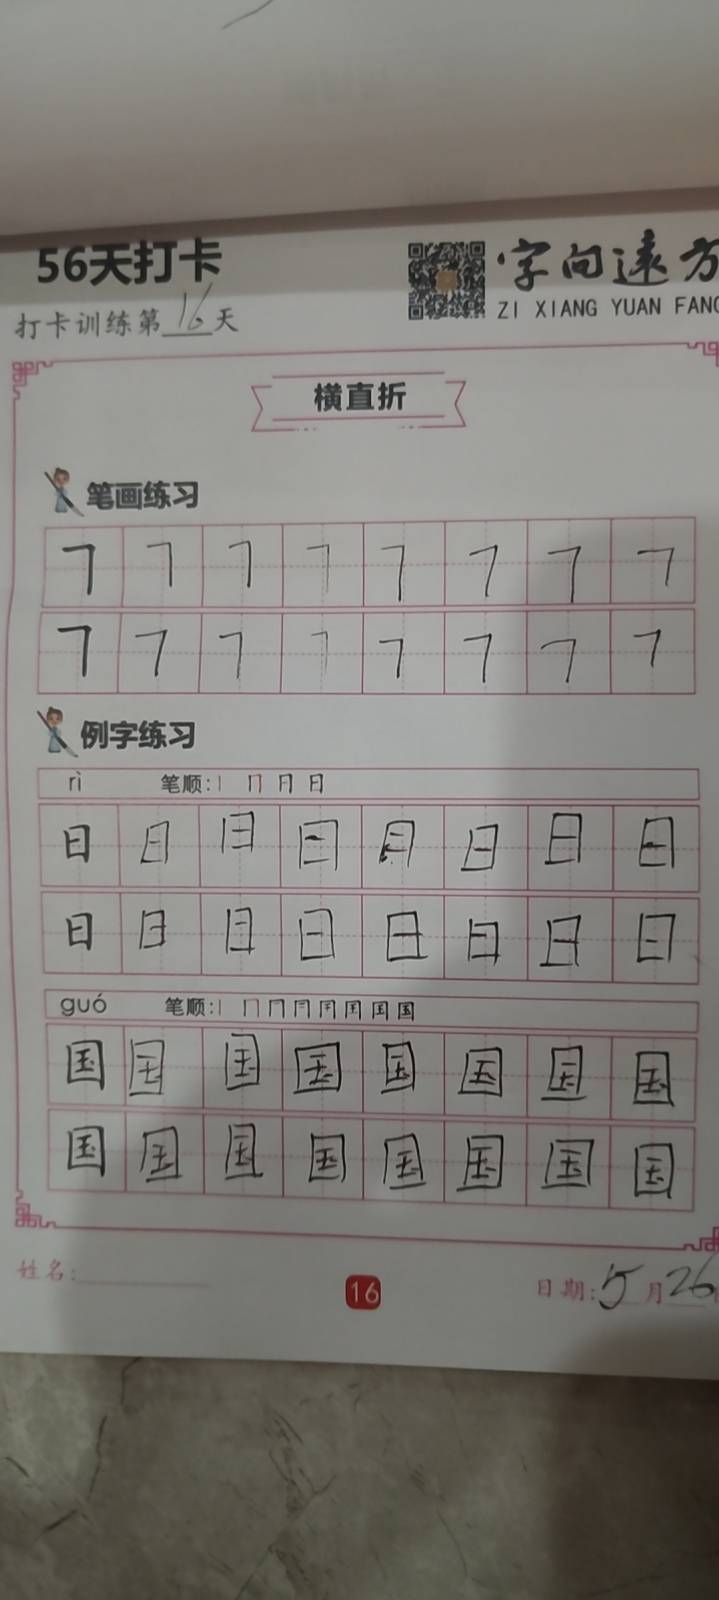 56天打卡
字向远方
ZI XIANG YUAN FANG
打卡训练第16天
横直折
笔画练习
㇕ ㇕ ㇕ ㇕ ㇕ ㇕ ㇕ ㇕
㇕ ㇕ ㇕ ㇕ ㇕ ㇕ ㇕ ㇕
例字练习
rì 笔顺:丨 冂 月 日
日 日 日 日 日 日 日 日
日 日 日 日 日 日 日 日
guó 笔顺:
国 国 国 国 国 国 国 国
国 国 国 国 国 国 国 国
姓名:
16
日期:5月26